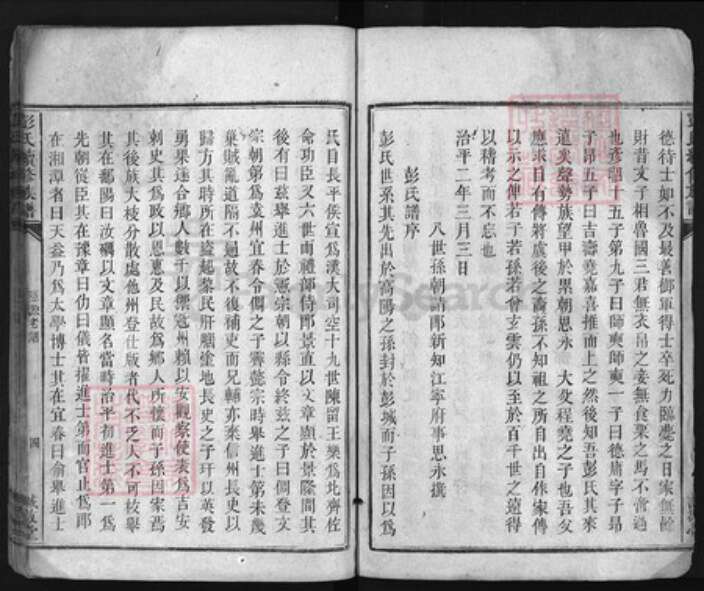 德待士如不及最善御軍得士卒死力臨薨之日家無餘
財昔文子相魯國三君無衣帛之妾無食粟之馬不啻過
也彥昭十五子第九子曰師奭師奭一子曰德庸字子昂
子昂五子曰吉壽堯嘉喜推而上之然後知吾彭氏其來
遠矣聲勢族望甲於累朝思永大父程堯之子也吾父
應求目有傳將虞後之裔孫不知祖之所自出自作家傳
以示之俾若子若孫若曾玄雲仍以至於百千世之遠得
以稽考而不忘也
治平二年三月三日
八世孫朝請郎新知江寧府事思永撰
彭氏譜序
彭氏世系其先出於高陽之孫封於彭城而子孫因以為
氏自長平侯宣為漢大司空十九世陳留王樂為北齊佐
命功臣又六世而禮部侍郎景直以文章顯於景隆間其
後有曰茲舉進士於憲宗朝以縣令終茲之子曰倜登文
宗朝第為袁州宜春令倜之子霽懿宗時舉進士第未幾
巢賊亂道隔不通故不復補吏而兄輔亦來信州長史以
歸方其時所在盜起黎民肝腦塗地長史之子玕以英發
勇果連合鄉人數千以禦寇州賴以安觀察使表為吉安
刺史其為政以恩惠及民故為鄉人所懷而子孫因家焉
其後族大枝分散處他州登仕版者代不乏人不可枚舉
其在鄱陽曰汝礪以文章顯名當時治平初進士第一為
先朝從臣其在豫章曰仂曰儀皆擢進士第而官止為郎
在湘潭者曰天益乃為太學博士其在宜春曰俞舉進士
彭氏續修族譜
四